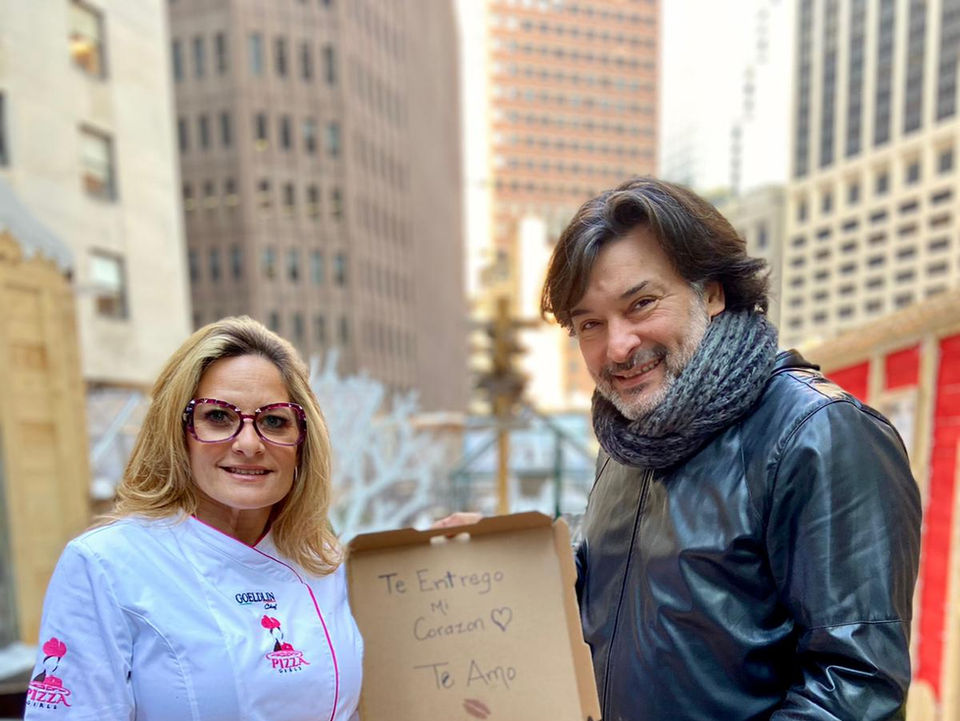 GOELDLIN
Chef
PIZZA
GIRLS
PIZZA
GIRLS
Te Entrego
Mi
Corazon
Te Amo